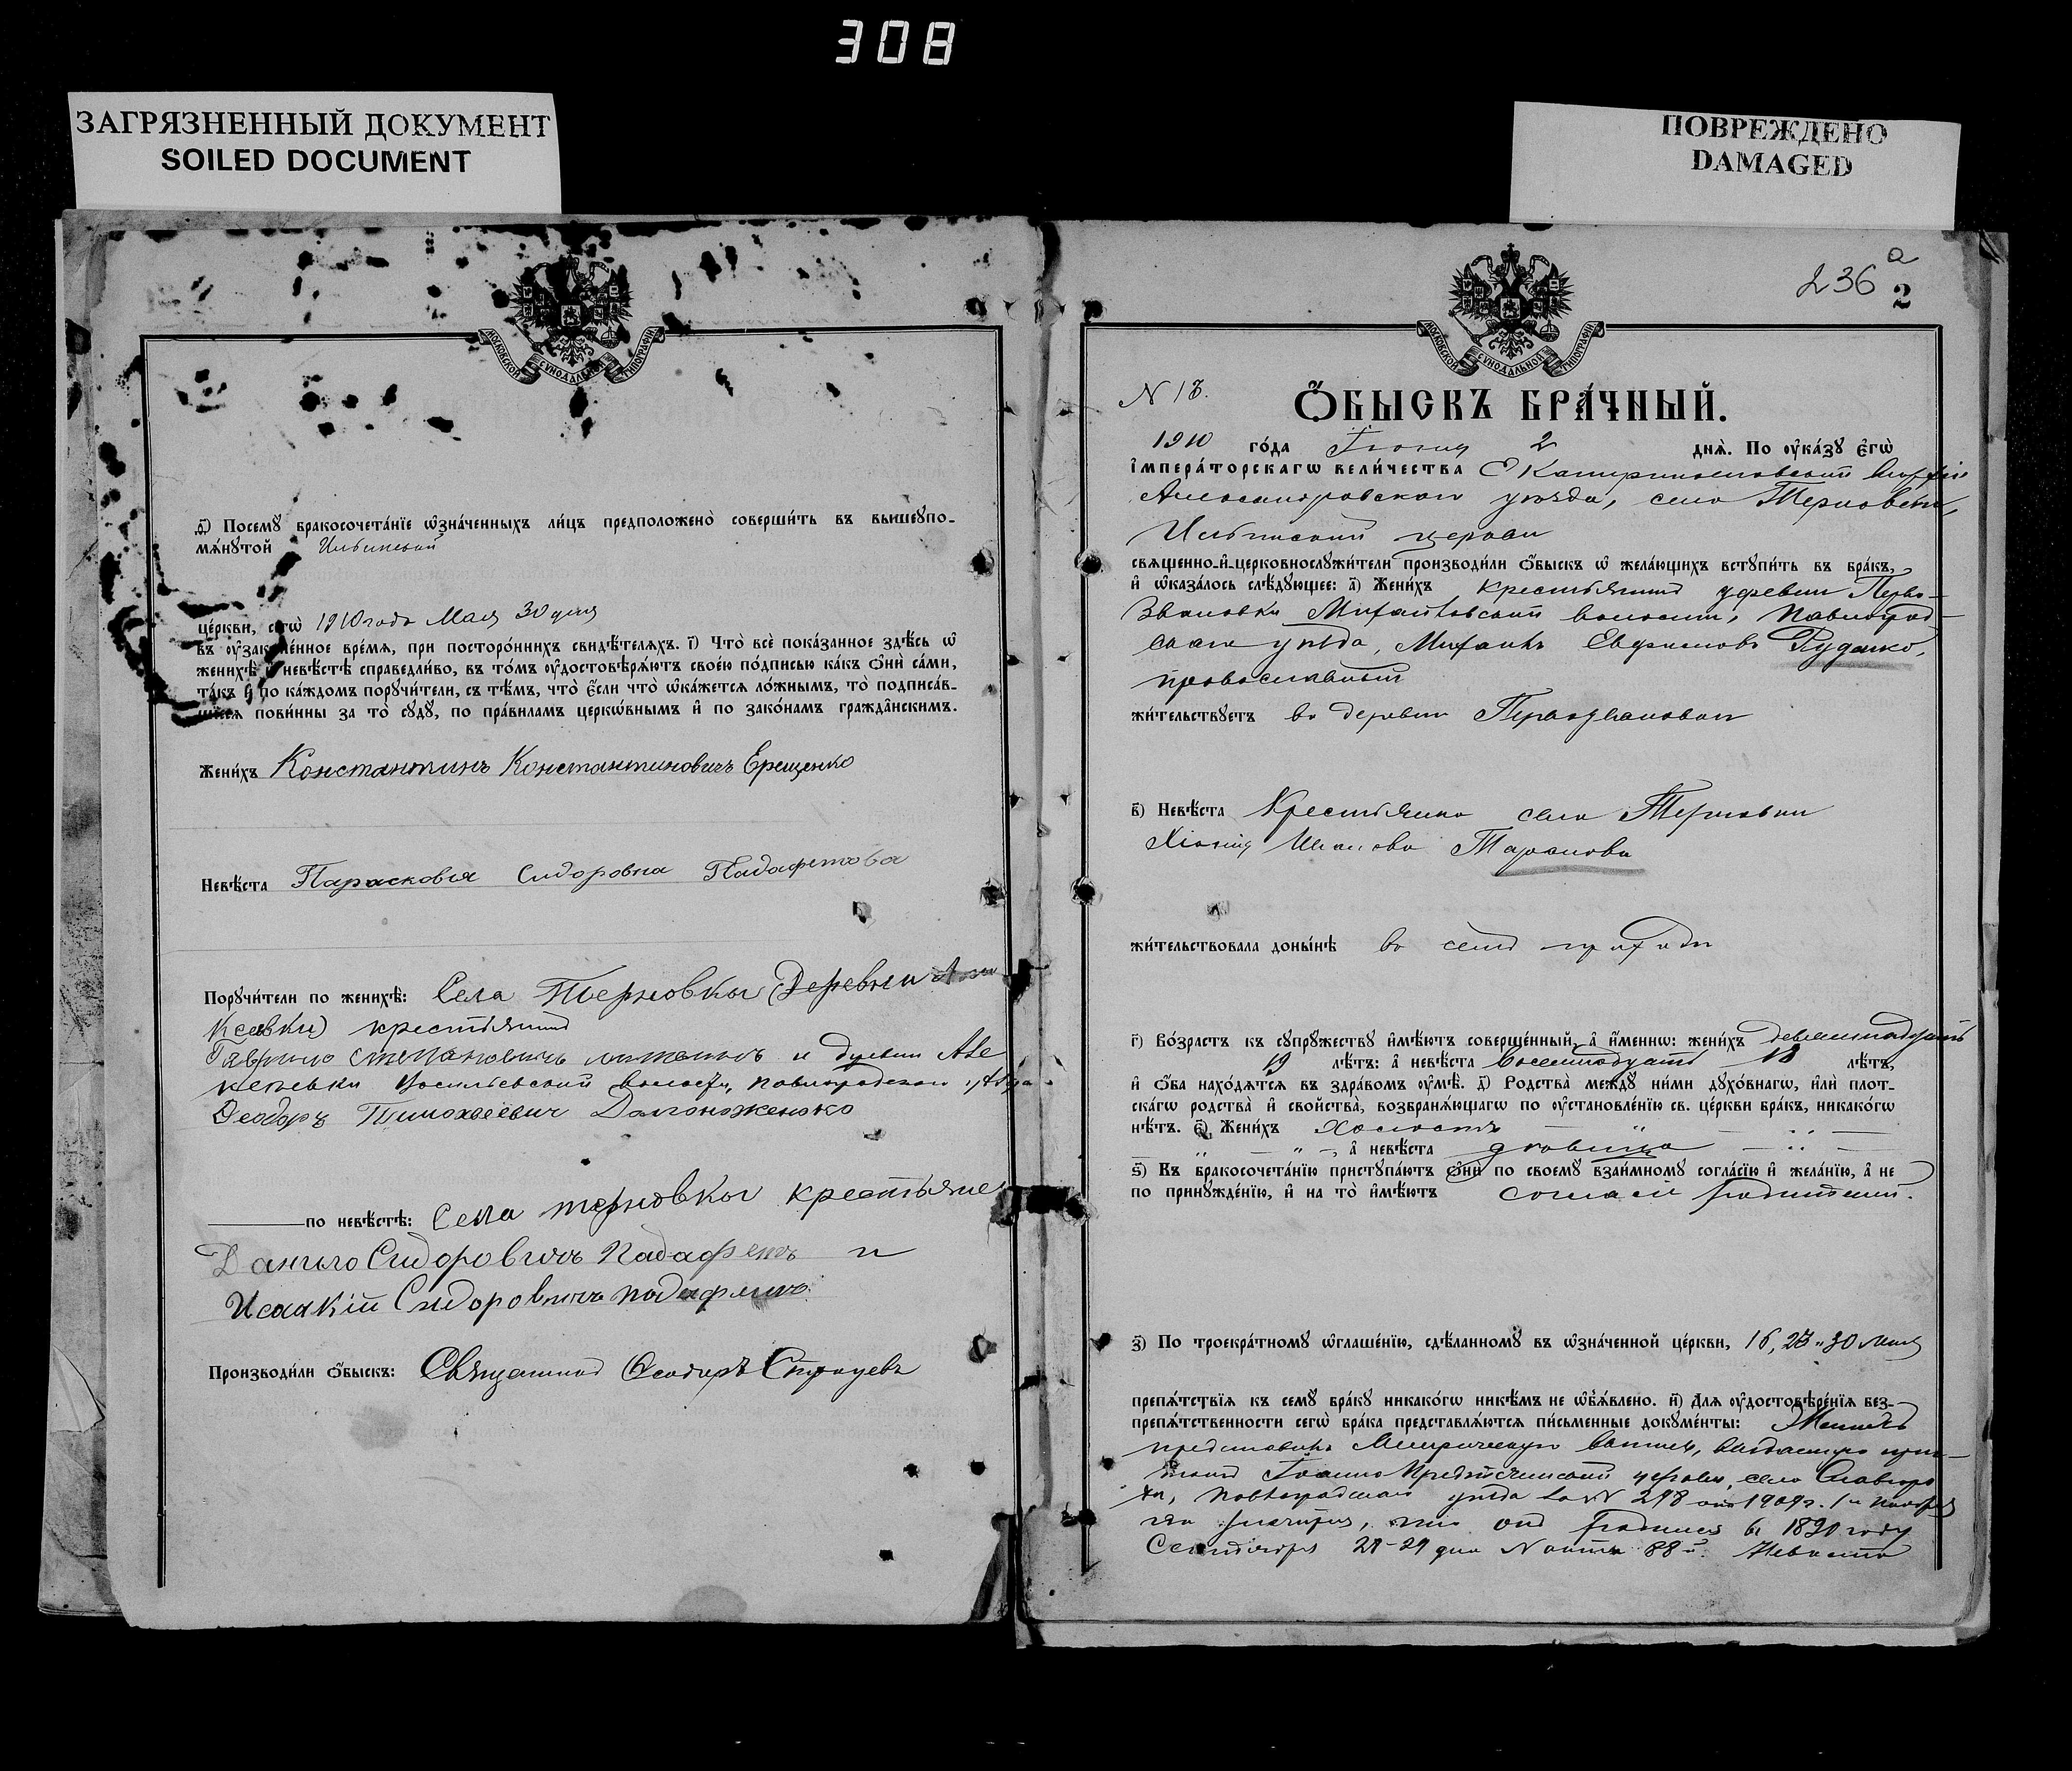 308
ЗАГРЯЗНЕННЫЙ ДОКУМЕНТ
SOILED DOCUMENT
ПОВРЕЖДЕНО
DAMAGED
МОСКОВСКОЙ СѴНОДАЛЬНОЙ ТИПОГРАФІИ
ѳ҃) Посемꙋ̀ бракосочета́нїе ѡ҆зна́ченныхъ ли́цъ предположено̀ соверши́ть въ вышеꙋпо-
мѧ́нꙋтой Ильинской
це́ркви, сегѡ̀ 1910 года Мая 30 дня
въ ᲂу҆зако́ненное вре́мѧ, при посторо́ннихъ свидѣ́телѧхъ. і҃) Что̀ всѐ пока́занное здѣ́сь ѡ҆
женихѣ̀ и҆ невѣ́стѣ справедли́во, въ то́мъ ᲂу҆достовѣрѧ́ютъ свое́ю по́дписью ка́къ ѻ҆нѝ са́ми,
та́къ и҆ по ка́ждомъ порꙋчи́тели, съ тѣ́мъ, что̀ є҆́сли что̀ ѡ҆ка́жетсѧ ло́жнымъ, то̀ подписа́в-
шїесѧ пови́нны за то̀ сꙋдꙋ̀, по пра́виламъ церкѡ́внымъ и҆ по зако́намъ гражда̂нскимъ.
Жени́хъ Константинъ Константиновичъ Ерещенко
Невѣ́ста Парасковья Сидоровна Падафетова
Порꙋчи́тели по женихѣ̀: Села Терновки (Деревни
ксевки) крестьянинъ
Гаврило Степановичъ и деревни Але
ксеевки Васильевской волости, Павлоградскаго уѣзда
Ѳеодоръ Тимохвеевич Долгоноженко
по невѣ́стѣ: Села терновки крестьяне
Данило Сидоровичъ Падафетъ и
Исаакій Сидоровичъ падафетъ
Производи́ли ѻ҆́быскъ: Священникъ Ѳеодоръ
236 а
2
МОСКОВСКОЙ СѴНОДАЛЬНОЙ ТИПОГРАФІИ
N 13.
Ѻ҆́БЫСКЪ БРА́ЧНЫЙ.
1910 го́да Іюня 2 днѧ̀. По ᲂу҆ка́зꙋ є҆гѡ̀
і҆мпера́торскагѡ вели́чества Екатеринославской епархіи
Александровскаго уѣзда, села Терновки,
Ильинской церкви
свѧще́нно-и҆-церковнослꙋжи́тели производи́ли ѻ҆́быскъ ѡ҆ жела́ющихъ встꙋпи́ть въ бра́къ,
и҆ ѡ҆каза́лось слѣ́дꙋющее: а҃) Жени́хъ крестьянинъ деревни Перво-
звановки Михайловской волости, Павлоград-
скаго уѣзда, Михаилъ Евфимовъ Руденко,
православный
жи́тельствꙋетъ въ деревни Первозвановки
в҃) Невѣ́ста Крестьянка села Терновки
Хіонія Иванова Таранова
жи́тельствовала доны́нѣ въ семъ приходѣ
г҃) Во́зрастъ къ сꙋпрꙋ́жествꙋ и҆мѣ́ютъ соверше́нный, а҆ и҆́меннѡ: жени́хъ девятнадцать
19 лѣ́тъ: а҆ невѣ́ста восемнадцать 18 лѣ́тъ,
и҆ ѻ҆́ба нахо́дѧтсѧ въ здра́вомъ ᲂу҆мѣ̀. д҃) Родства̀ междꙋ̀ ни́ми дꙋхо́внагѡ, и҆лѝ плот-
ска́гѡ родства̀ и҆ сво́йства, возбранѧ́ющагѡ по ᲂу҆становле́нїю св. це́ркви бра́къ, никако́гѡ
нѣ́тъ. є҃) Жени́хъ холостъ
а҆ невѣ́ста дѣвица
ѕ҃) Къ бракосочета́нїю пристꙋпа́ютъ ѻ҆нѝ по своемꙋ̀ взаи́мномꙋ согла́сїю и҆ жела́нїю, а҆ не
по принꙋжде́нїю, и҆ на то̀ и҆мѣ́ютъ согласіе родителей.
з҃) По троекра́тномꙋ ѡ҆глаше́нїю, сдѣ́ланномꙋ въ ѡ҆зна́ченной це́ркви, 16, 23 и 30 Мая
препѧ́тствїѧ къ семꙋ̀ бра́кꙋ никако́гѡ никѣ́мъ не ѡ҆б̾ѧ́влено. и҃) Длѧ ᲂу҆достовѣре́нїѧ без-
препѧ́тственности сегѡ̀ бра́ка представлѧ́ютсѧ пи́сьменные докꙋме́нты: Женихъ
представилъ Метрическую выпись, выданную
Іоанно Предтеченской церкви, села Славгоро
да, Павлоградскаго уѣзда за № 298 от 1909 г.
что онъ родился въ 1890 году
Сентября 28-29 дня № 88 й. Невѣста